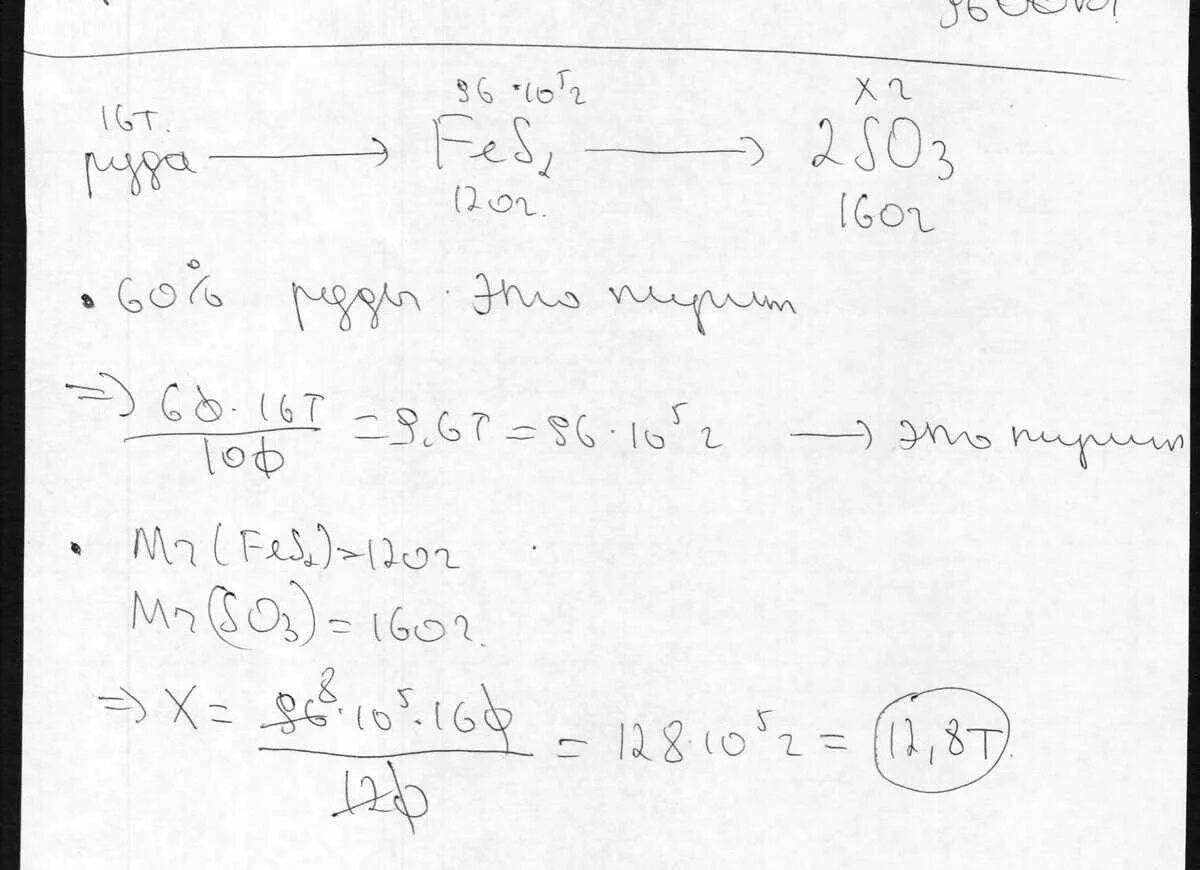 96 · 10⁵ г
х г
16т.
руда ⟶ FeS₂ ⟶ 2SO₃
120г.
160г
· 60% руды это пирит
=> 60 · 16т / 100 = 9,6т = 96 · 10⁵ г ⟶ это пирит
· Mr (FeS₂) = 120г
Mr (SO₃) = 160г.
=> X = 96 8 · 10⁵ · 160 / 120 = 128 · 10⁵ г = 12,8т.